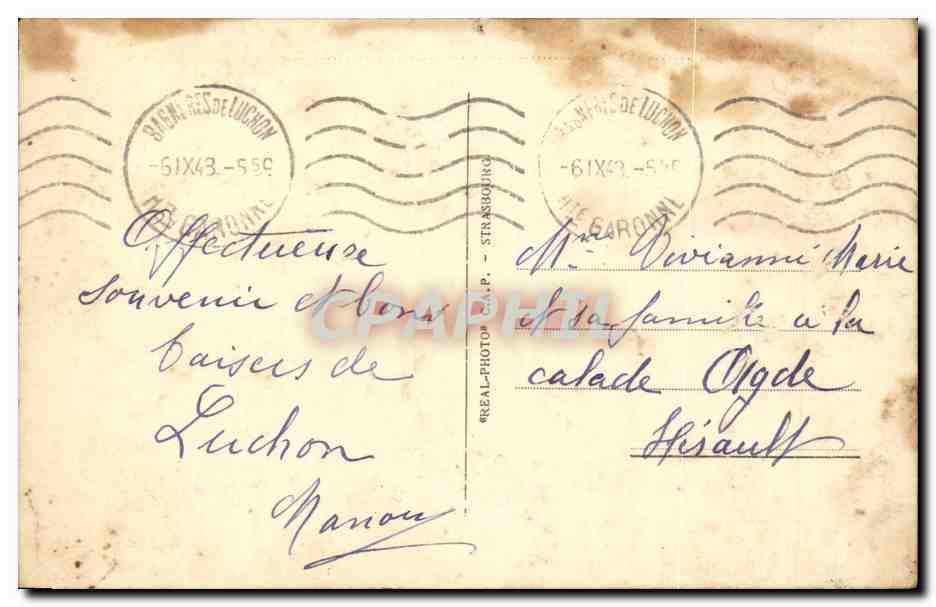 BAGNERES DE LUCHON
-6 IX 43.-5
HTE GARONNE
BAGNERES DE LUCHON
-6 IX 43.-5
HTE GARONNE
Affectueuse
souvenir et bons
baisers de
Luchon
Manou
"REAL-PHOTO" C.A.P. - STRASBOURG
CPAPHIL
Mme Vivianni Marie
et sa famille a la
calade Agde
Hérault